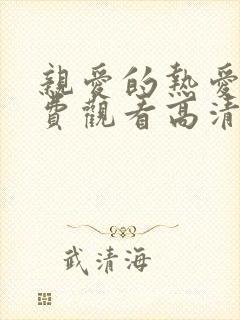 親愛的熱愛
費觀看高清
武清海